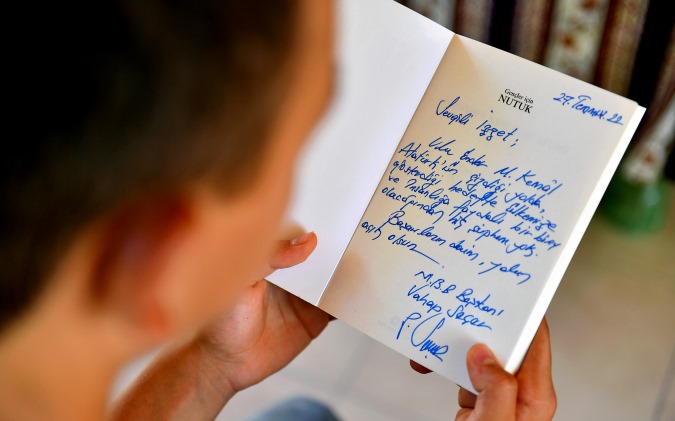 Gençler için
NUTUK
27. Temmuz. 22
Sevgili İzzet;
Ulu Önder M. Kemâl
Atatürk'ün çizdiği yolda,
gösterdiği hedefte ülkemize
ve İnsanlığa faydalı bir birey
olacağından hiç şüphem yok.
Başarıların daim, yolun
açık olsun
M.B.B Başkanı
Vahap Seçer